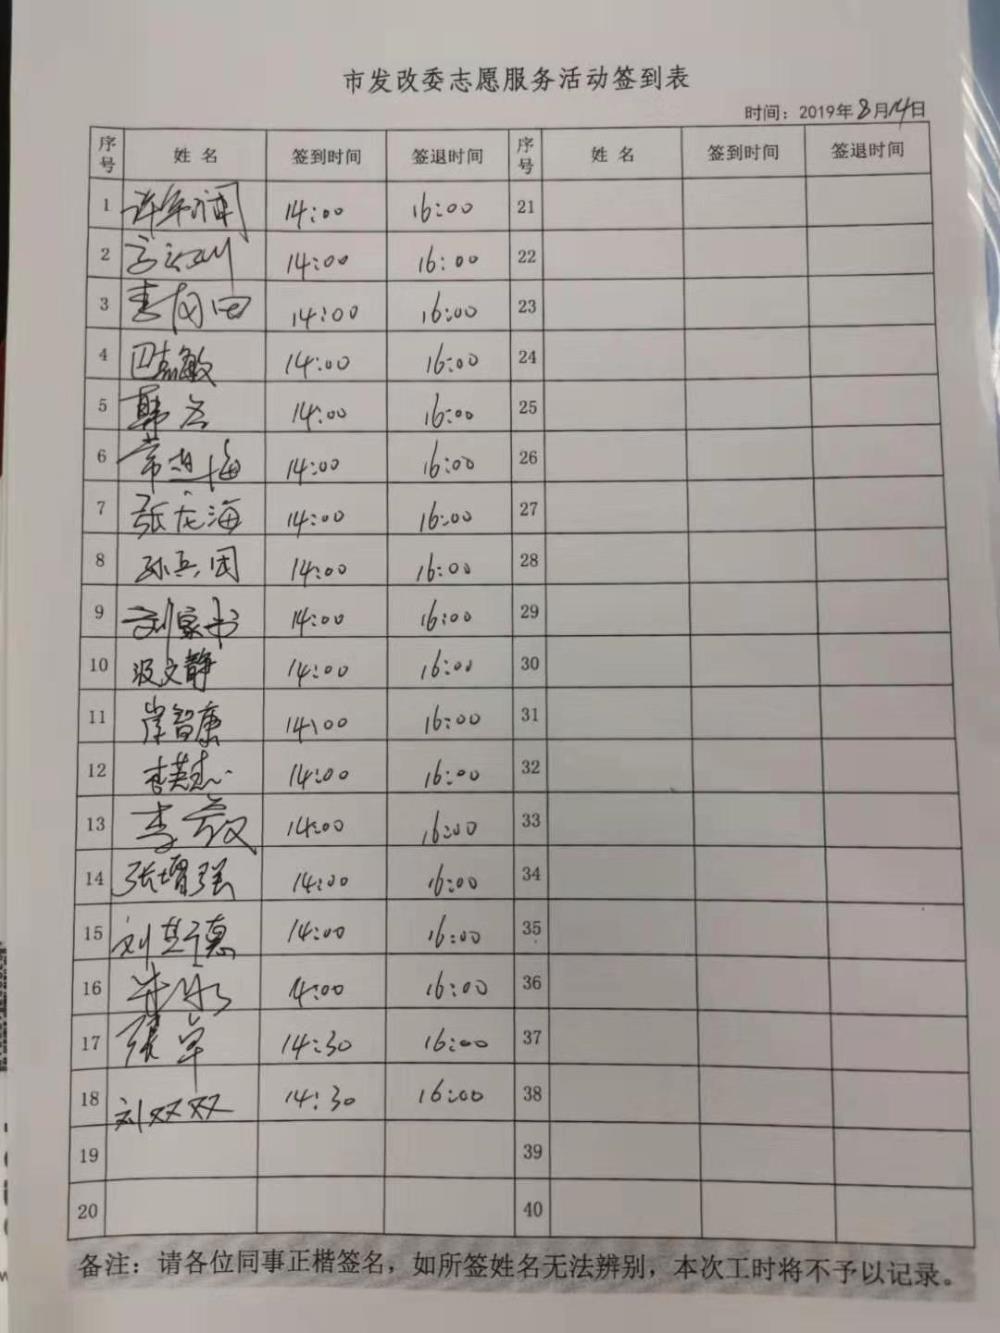 市发改委志愿服务活动签到表
时间：2019年8月14日
序号 姓名 签到时间 签退时间 序号 姓名 签到时间 签退时间
1 14:00 16:00 21
2 14:00 16:00 22
3 14:00 16:00 23
4 14:00 16:00 24
5 14:00 16:00 25
6 14:00 16:00 26
7 张龙海 14:00 16:00 27
8 孙兵团 14:00 16:00 28
9 14:00 16:00 29
10 14:00 16:00 30
11 14:00 16:00 31
12 14:00 16:00 32
13 14:00 16:00 33
14 张增强 14:00 16:00 34
15 14:00 16:00 35
16 14:00 16:00 36
17 张军 14:30 16:00 37
18 刘双双 14:30 16:00 38
19 39
20 40
备注：请各位同事正楷签名，如所签姓名无法辨别，本次工时将不予以记录。